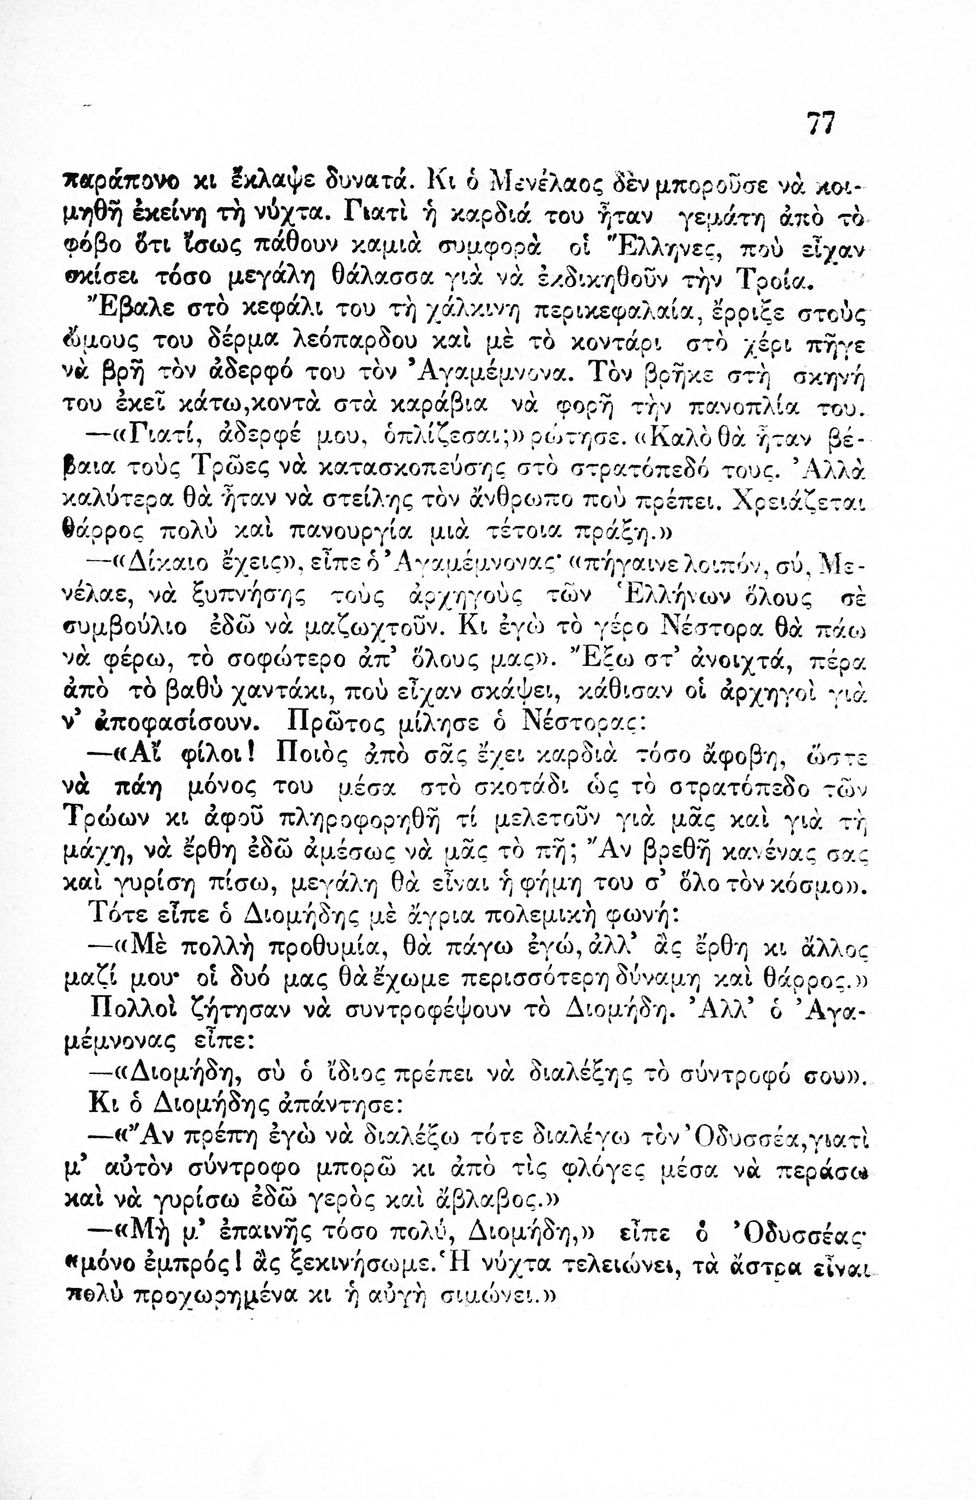 77
παράπονο κι ἔκλαψε δυνατά. Κι ὁ Μενέλαος δὲν μποροῦσε νὰ κοι-
μηθῆ ἐκείνη τὴ νύχτα. Γιατὶ ἡ καρδιά του ἦταν γεμάτη ἀπὸ τὸ
φόβο ὅτι ἴσως πάθουν καμιὰ συμφορὰ οἱ Ἕλληνες, ποὺ εἶχαν
σκίσει τόσο μεγάλη θάλασσα γιὰ νὰ ἐκδικηθοῦν τὴν Τροία.
Ἔβαλε στὸ κεφάλι του τὴ χάλκινη περικεφαλαία, ἔρριξε στοὺς
ὤμους του δέρμα λεόπαρδου καὶ μὲ τὸ κοντάρι στὸ χέρι πῆγε
νὰ βρῆ τὸν ἀδερφό του τὸν Ἀγαμέμνονα. Τὸν βρῆκε στὴ σκηνή
του ἐκεῖ κάτω,κοντὰ στὰ καράβια νὰ φορῆ τὴν πανοπλία του.
—«Γιατί, ἀδερφέ μου, ὁπλίζεσαι;» ρώτησε. «Καλὸ θὰ ἦταν βέ-
βαια τοὺς Τρῶες νὰ κατασκοπεύσης στὸ στρατόπεδό τους. Ἀλλὰ
καλύτερα θὰ ἦταν νὰ στείλης τὸν ἄνθρωπο ποὺ πρέπει. Χρειάζεται
θάρρος πολὺ καὶ πανουργία μιὰ τέτοια πράξη.»
—«Δίκαιο ἔχεις», εἶπε ὁ Ἀγαμέμνονας· «πήγαινε λοιπόν, σύ, Με-
νέλαε, νὰ ξυπνήσης τοὺς ἀρχηγοὺς τῶν Ἑλλήνων ὅλους σὲ
συμβούλιο ἐδῶ νὰ μαζωχτοῦν. Κι ἐγὼ τὸ γέρο Νέστορα θὰ πάω
νὰ φέρω, τὸ σοφώτερο ἀπ’ ὅλους μας». Ἔξω στ’ ἀνοιχτά, πέρα
ἀπὸ τὸ βαθὺ χαντάκι, ποὺ εἶχαν σκάψει, κάθισαν οἱ ἀρχηγοὶ γιὰ
ν’ ἀποφασίσουν. Πρῶτος μίλησε ὁ Νέστορας:
—«Αἴ φίλοι! Ποιὸς ἀπὸ σᾶς ἔχει καρδιὰ τόσο ἄφοβη, ὥστε
νὰ πάη μόνος του μέσα στὸ σκοτάδι ὡς τὸ στρατόπεδο τῶν
Τρώων κι ἀφοῦ πληροφορηθῆ τί μελετοῦν γιὰ μᾶς καὶ γιὰ τὴ
μάχη, νὰ ἔρθη ἐδῶ ἀμέσως νὰ μᾶς τὸ πῆ; Ἂν βρεθῆ κανένας σας
καὶ γυρίση πίσω, μεγάλη θὰ εἶναι ἡ φήμη του σ’ ὅλο τὸν κόσμο».
Τότε εἶπε ὁ Διομήδης μὲ ἄγρια πολεμικὴ φωνή:
—«Μὲ πολλὴ προθυμία, θὰ πάγω ἐγώ, ἀλλ’ ἂς ἔρθη κι ἄλλος
μαζί μου· οἱ δυό μας θὰ ἔχωμε περισσότερη δύναμη καὶ θάρρος.»
Πολλοὶ ζήτησαν νὰ συντροφέψουν τὸ Διομήδη. Ἀλλ’ ὁ Ἀγα-
μέμνονας εἶπε:
—«Διομήδη, σὺ ὁ ἴδιος πρέπει νὰ διαλέξης τὸ σύντροφό σου».
Κι ὁ Διομήδης ἀπάντησε:
—«Ἂν πρέπη ἐγὼ νὰ διαλέξω τότε διαλέγω τὸν Ὀδυσσέα,γιατὶ
μ’ αὐτὸν σύντροφο μπορῶ κι ἀπὸ τὶς φλόγες μέσα νὰ περάσω
καὶ νὰ γυρίσω ἐδῶ γερὸς καὶ ἄβλαβος.»
—«Μὴ μ’ ἐπαινῆς τόσο πολύ, Διομήδη,» εἶπε ὁ Ὀδυσσέας·
«μόνο ἐμπρός! ἂς ξεκινήσωμε. Ἡ νύχτα τελειώνει, τὰ ἄστρα εἶναι
πολὺ προχωρημένα κι ἡ αὐγὴ σιμώνει.»